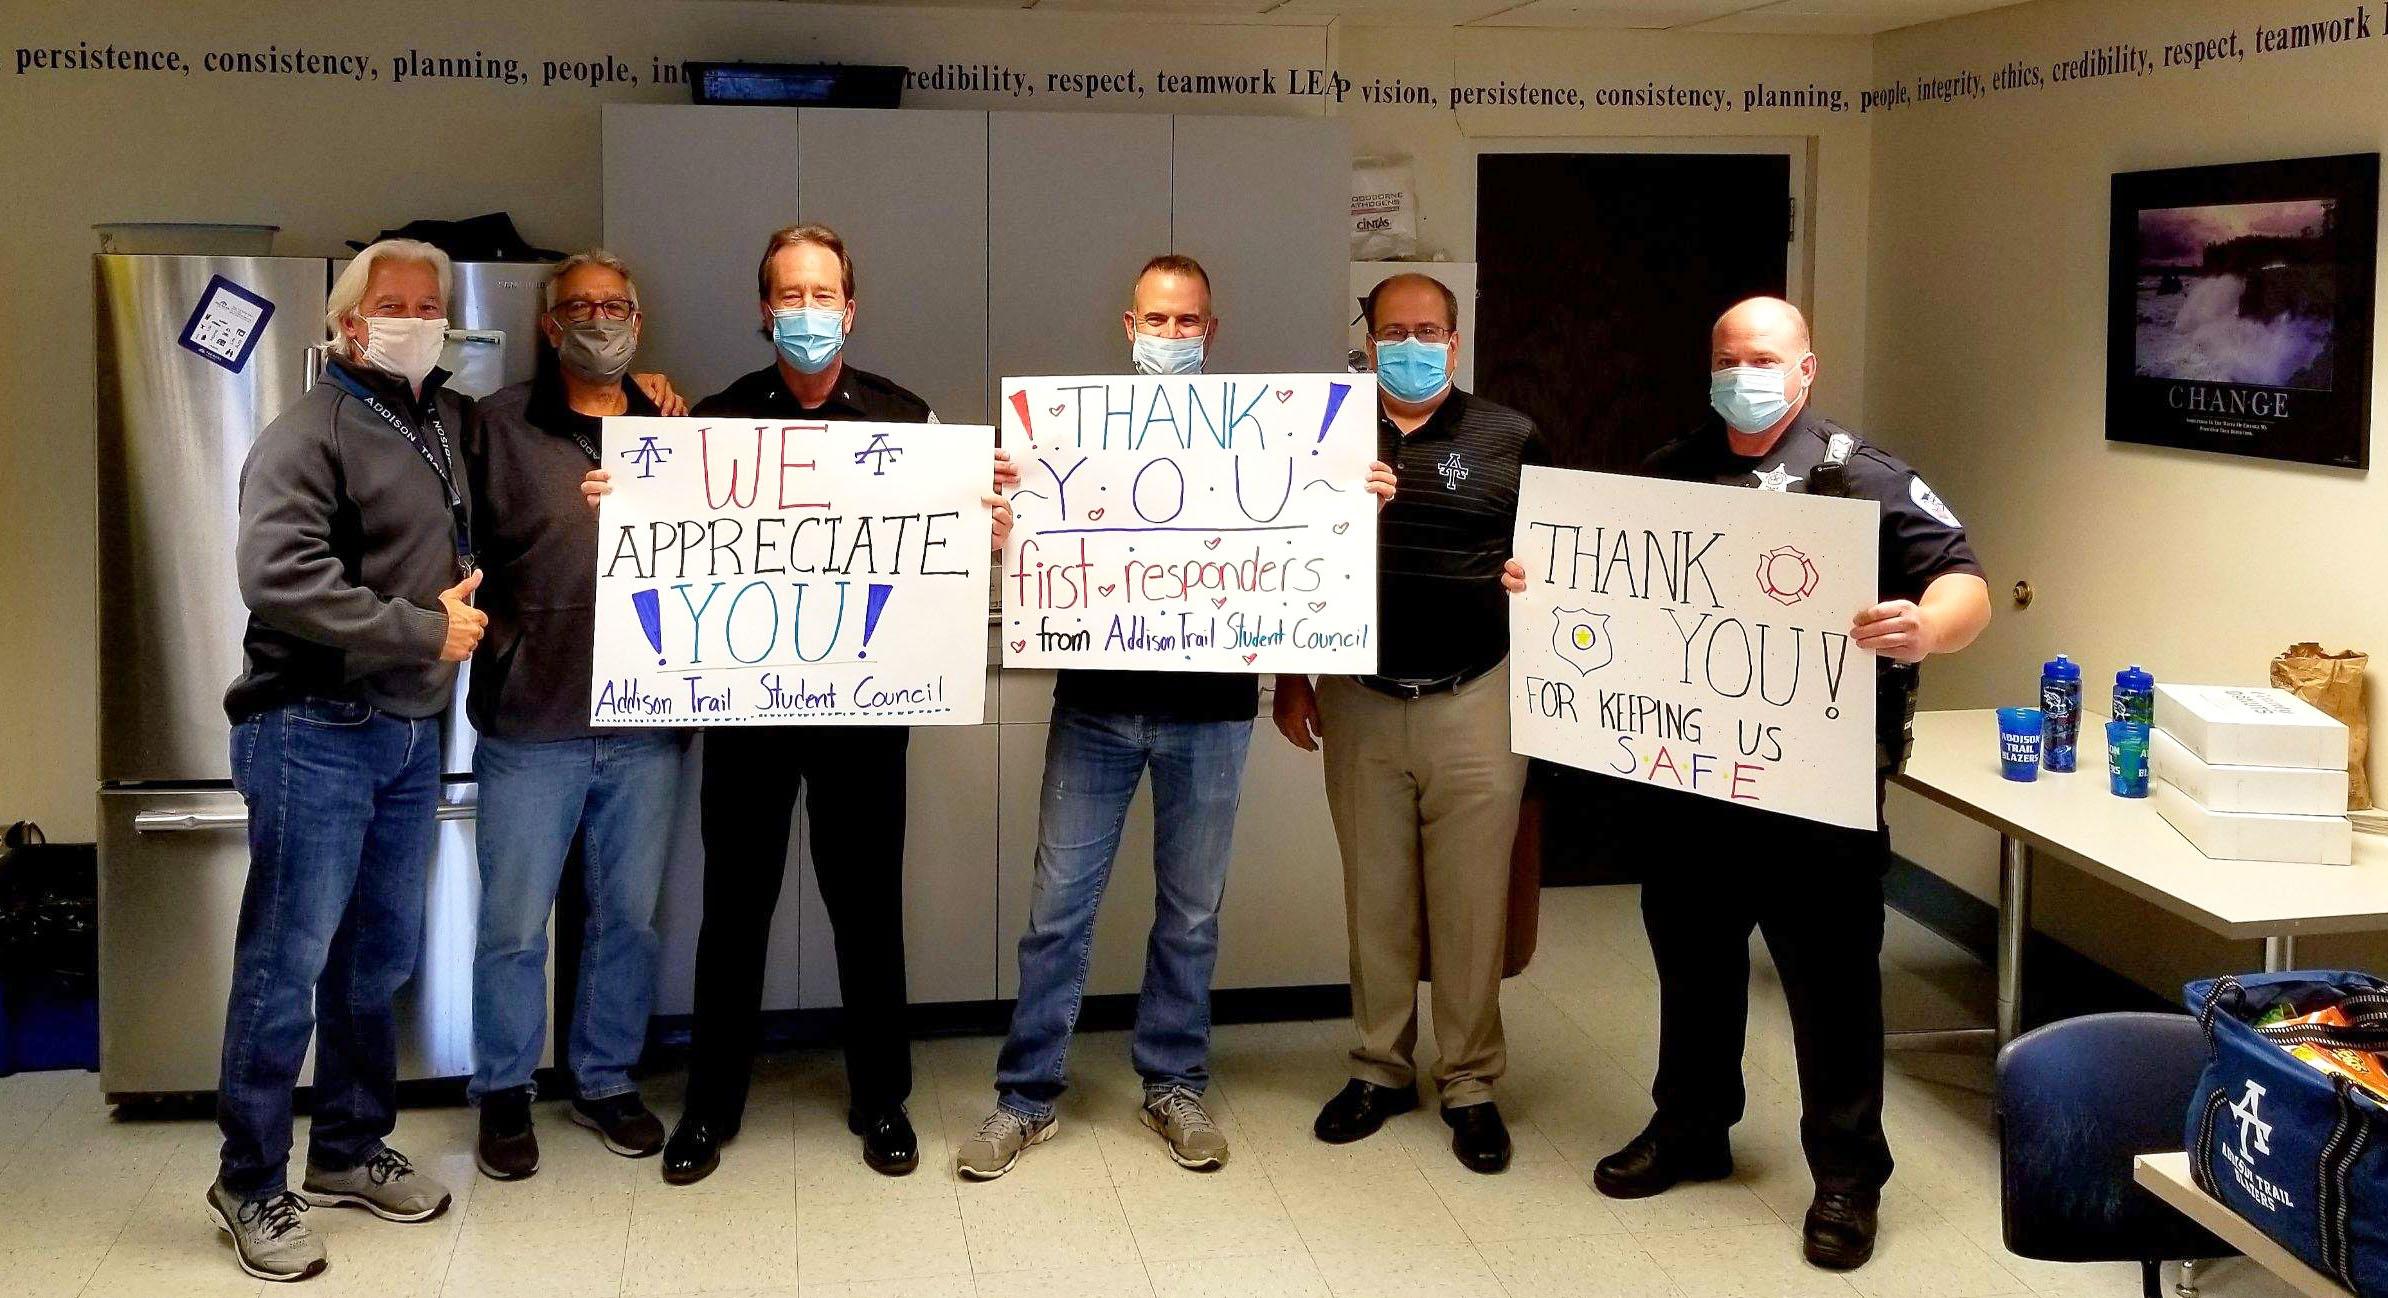 persistence, consistency, planning, people, int
redibility, respect, teamwork LEAP vision, persistence, consistency, planning, people, integrity, ethics, credibility, respect, teamwork
PATHOGENS
CINTAS
CHANGE
ADDISON TRA
AT
WE
AT
APPRECIATE
!YOU!
Addison Trail Student Council
! THANK !
~Y.O.U~
first responders
from Addison Trail Student Council
AT
THANK
YOU!
FOR KEEPING US
S.A.F.E
ADDISON
TRAIL
BLAZERS
AT
ADDISON TRAIL
BLAZERS